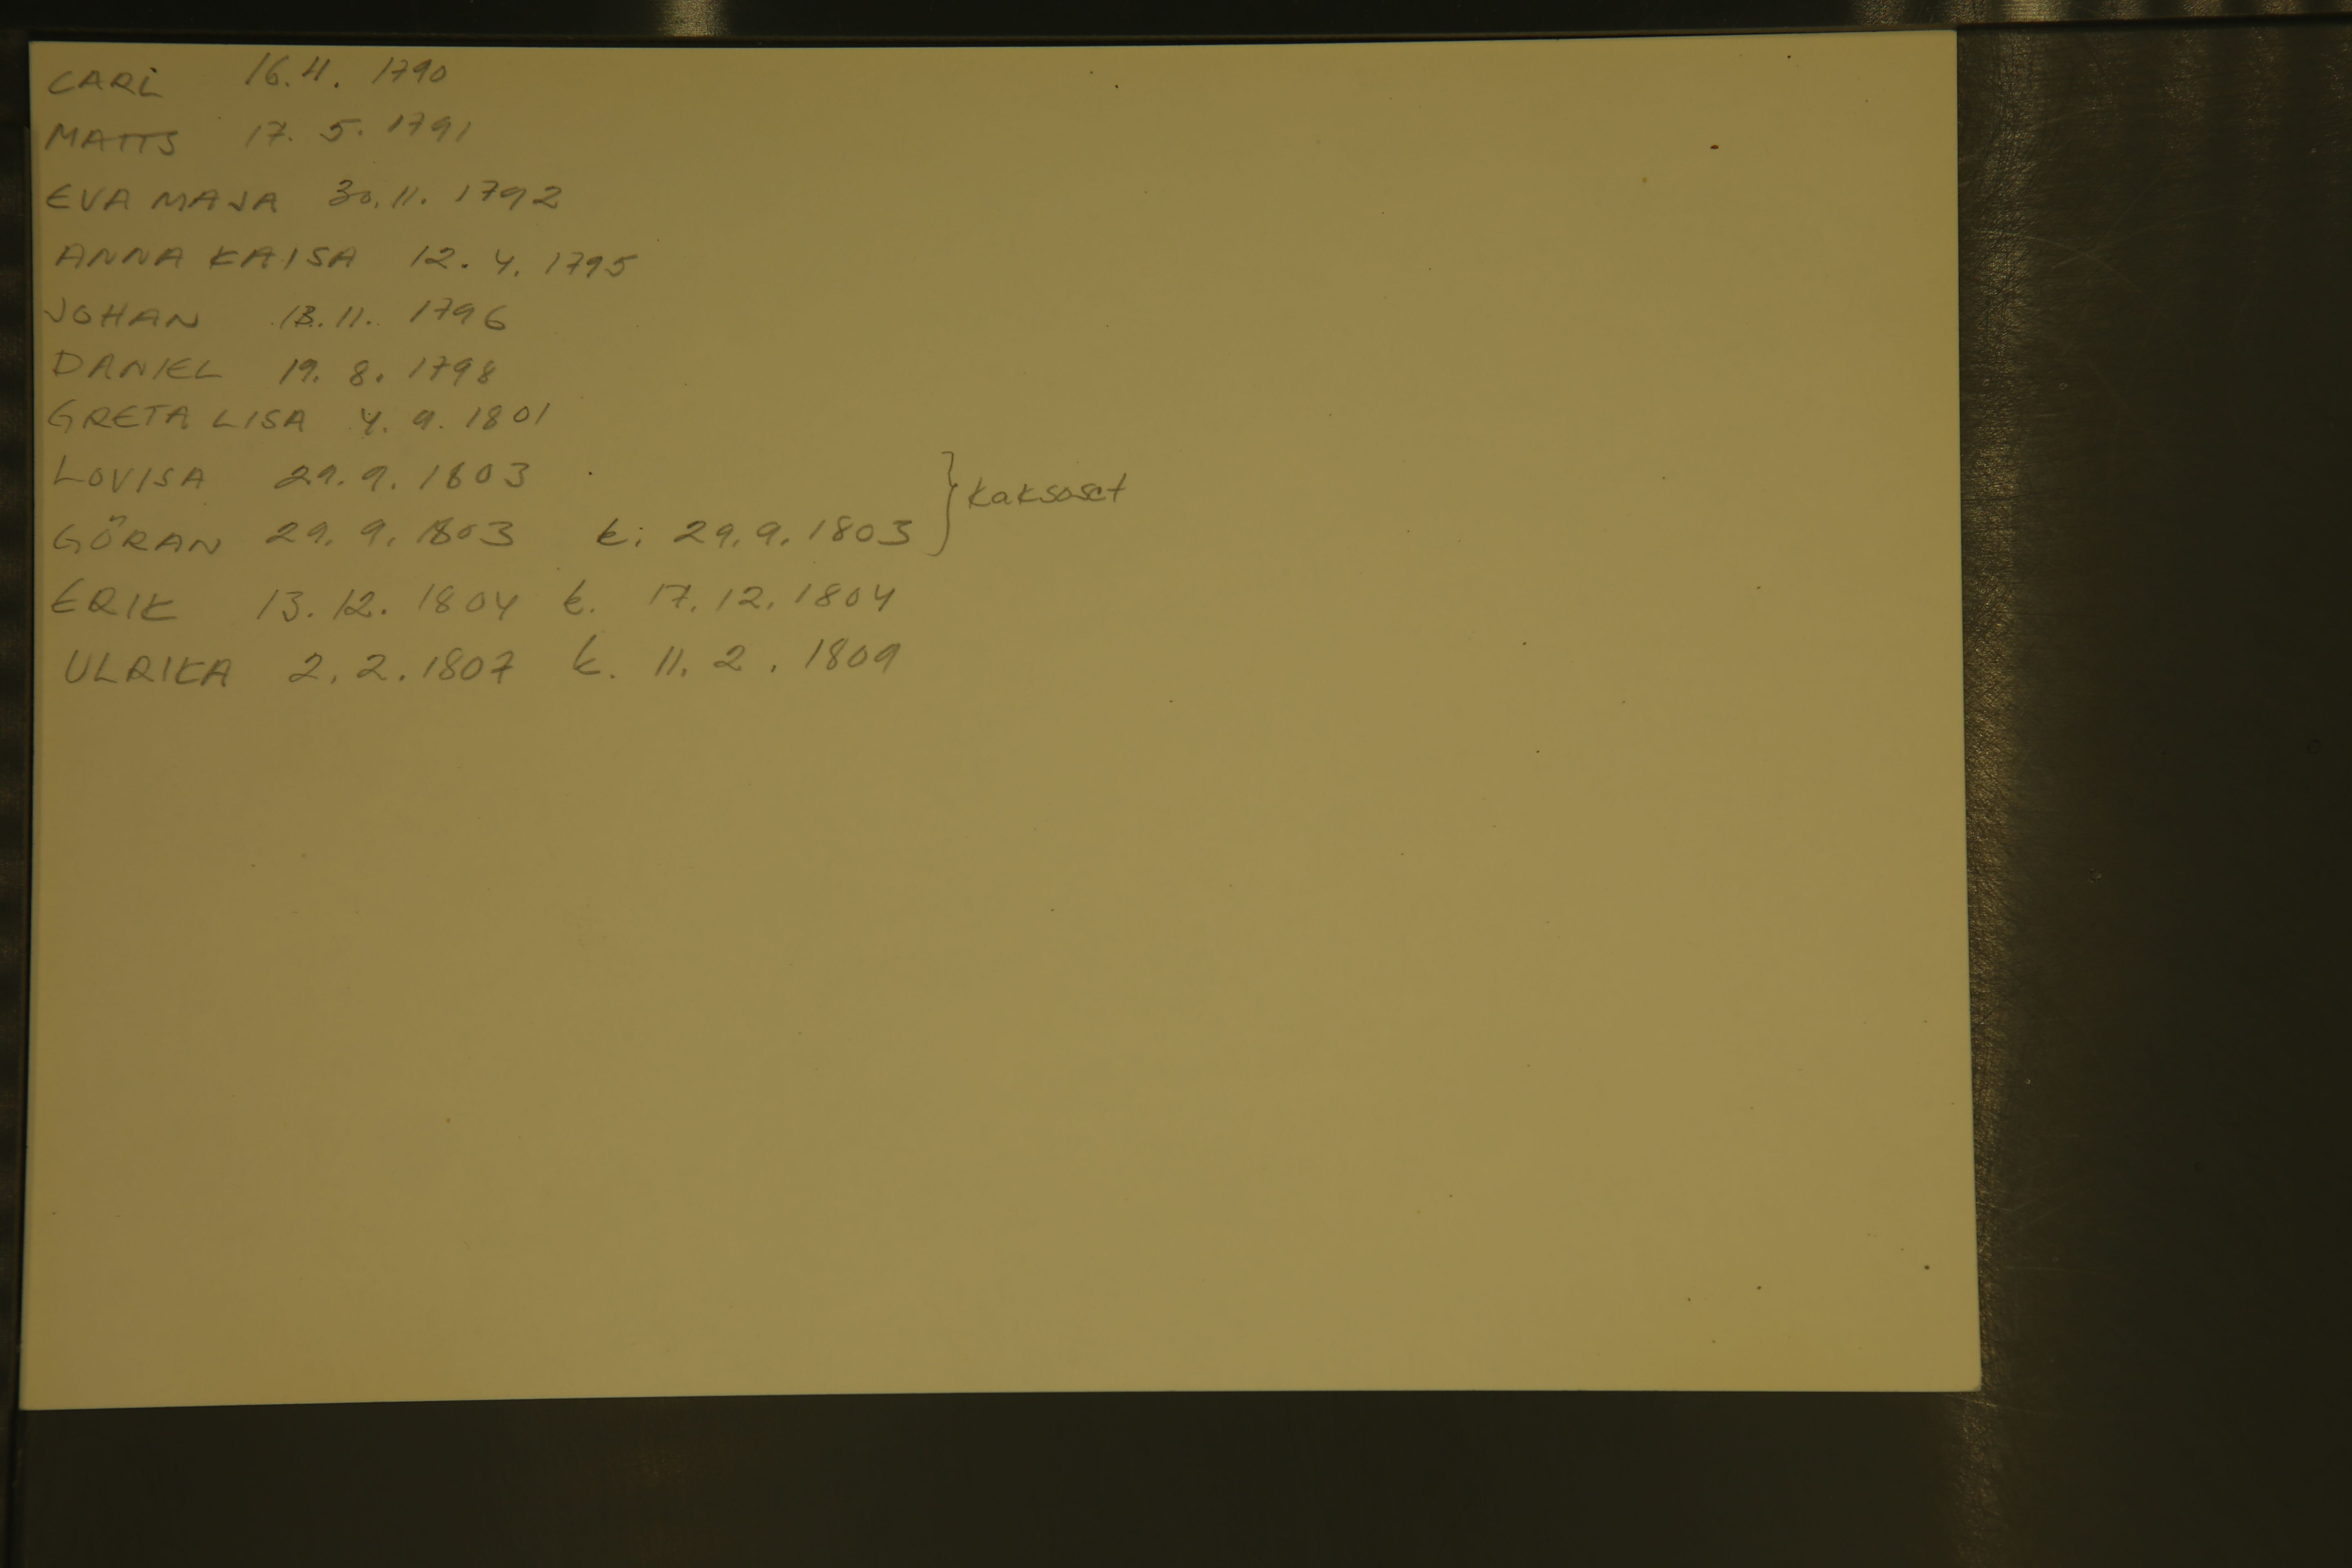 CARL 16.4. 1790
MATTS 17. 5. 1791
EVA MAJA 30.11. 1792
ANNA KAISA 12. 4. 1795
JOHAN 13.11. 1796
DANIEL 19. 8. 1798
GRETA LISA 4. 9. 1801
LOVISA 29. 9. 1803
GÖRAN 29. 9. 1803 k: 29.9.1803 } kaksoset
ERIK 13. 12. 1804 k. 17.12.1804
ULRIKA 2. 2. 1807 k. 11. 2. 1809